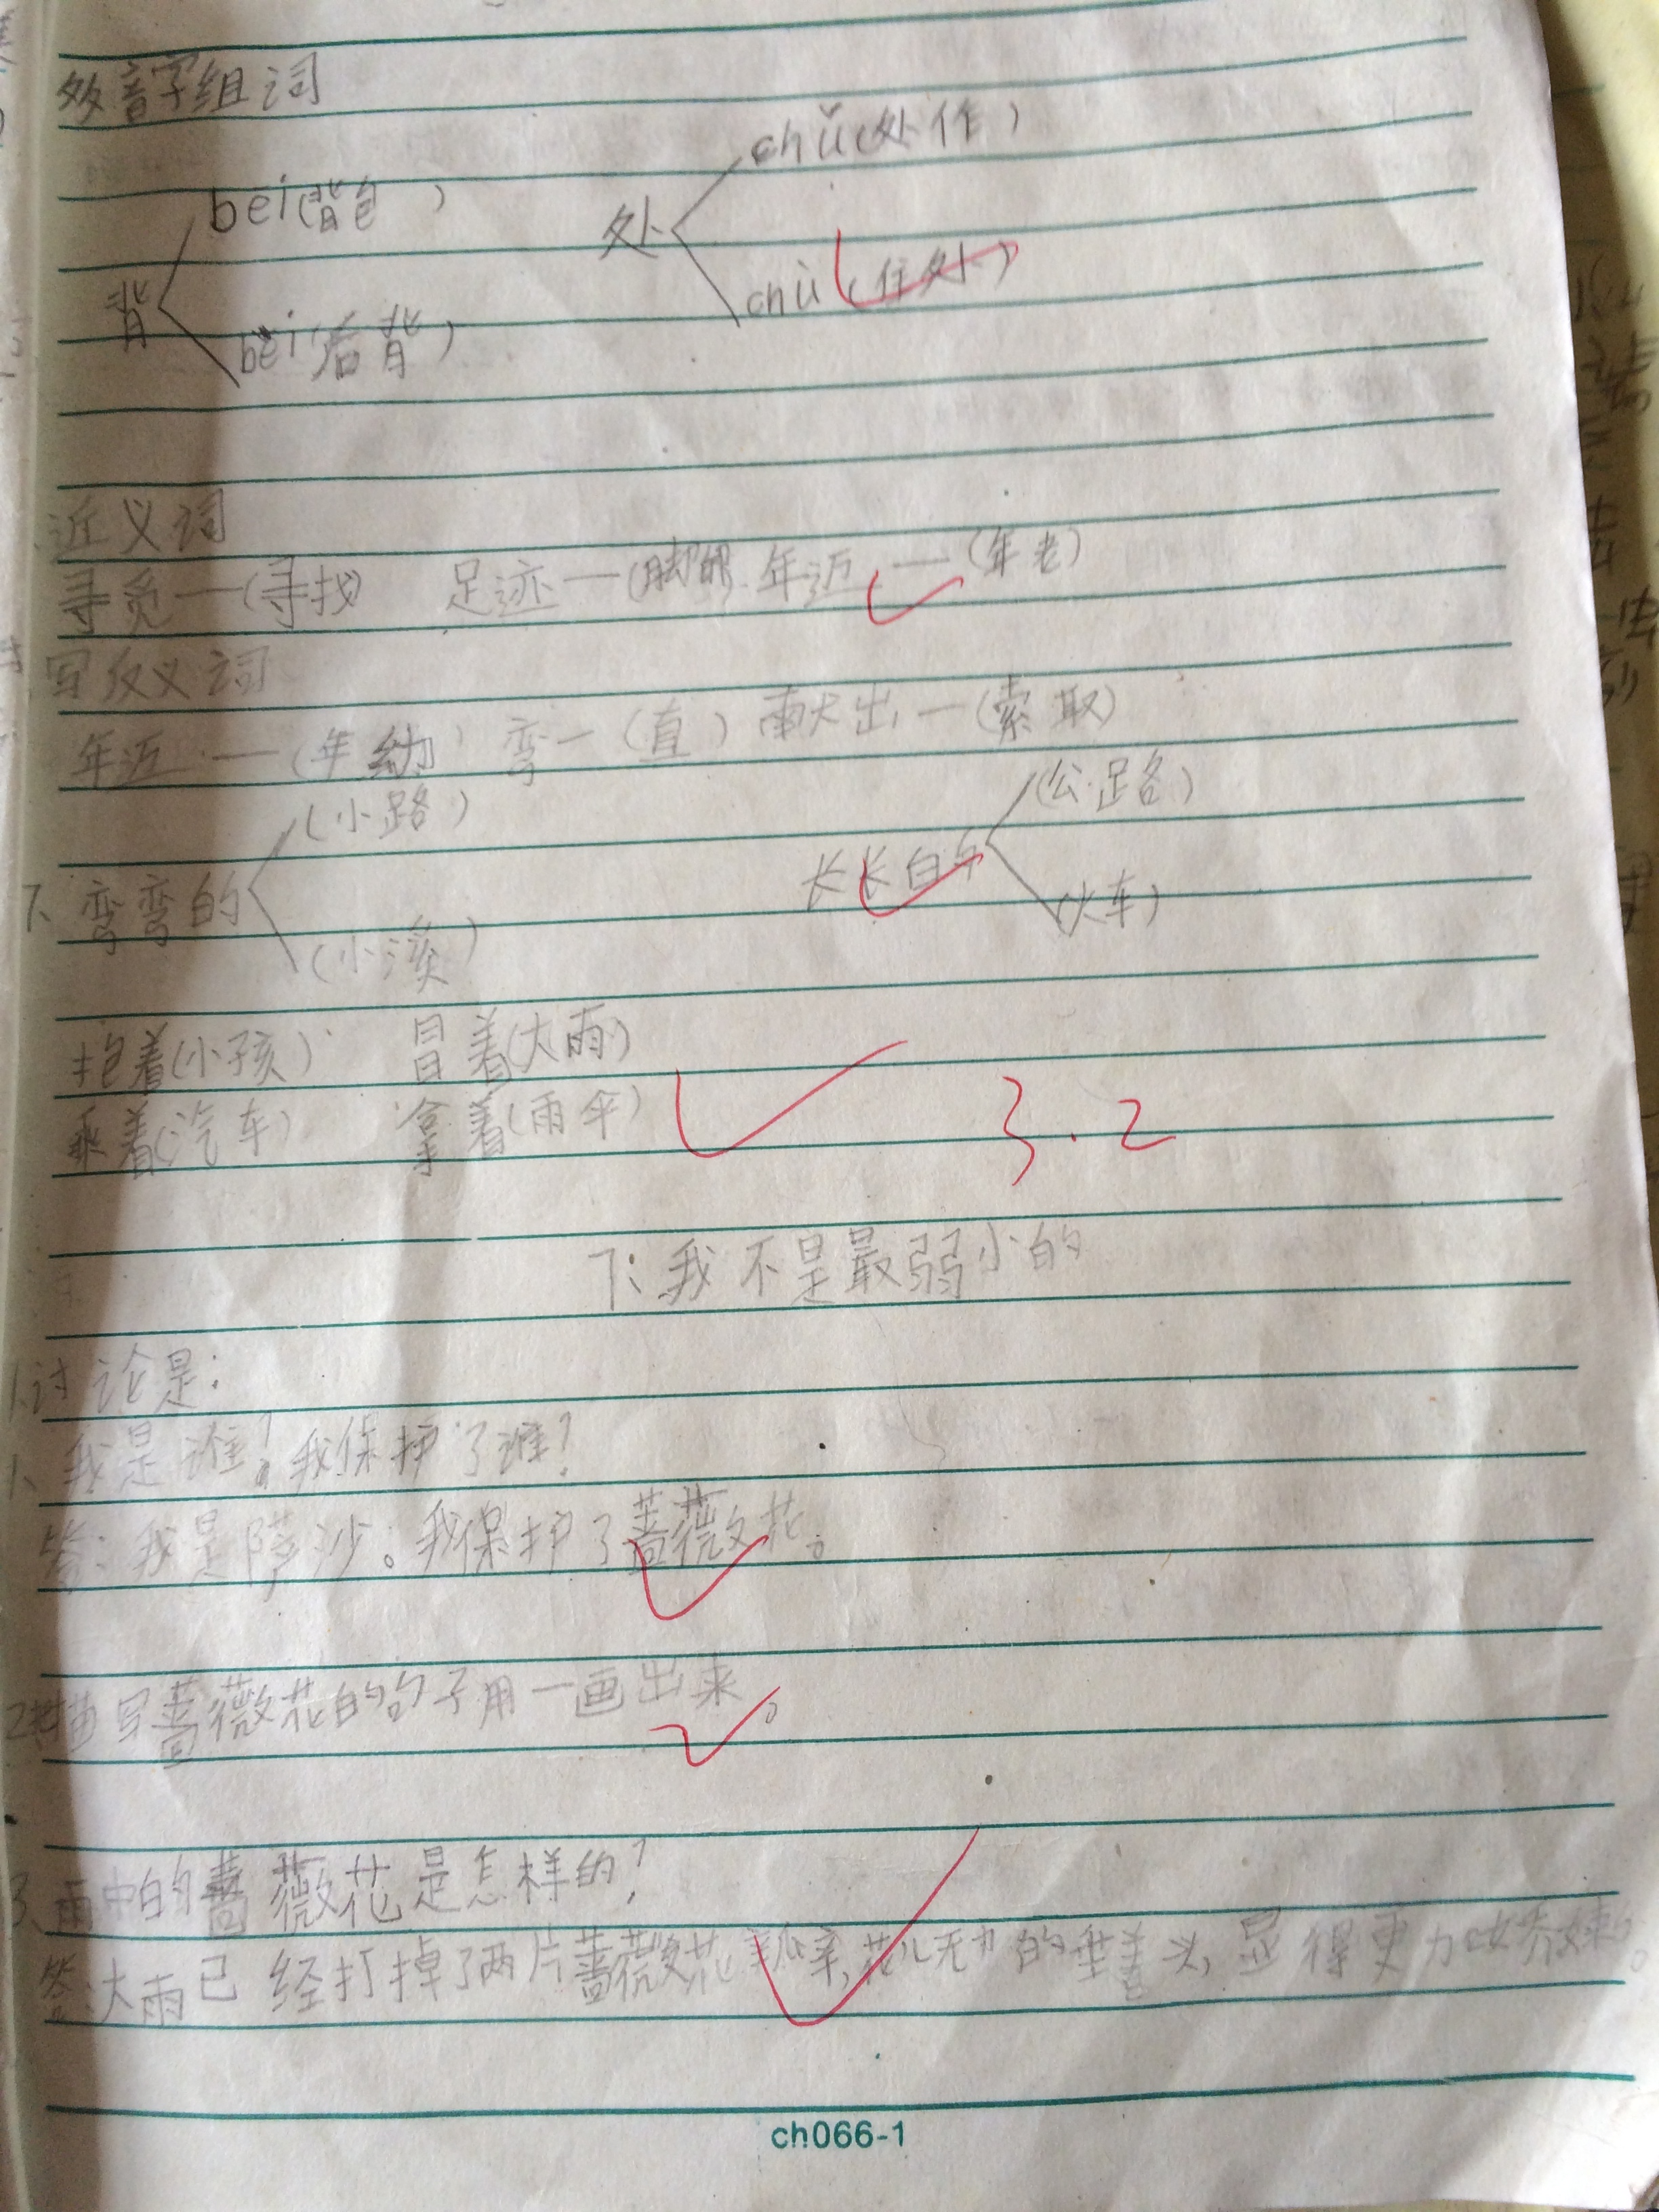 多音字组词
chǔ(处作)
bēi(背包)
处
chù(住处)
背
bèi(后背)
近义词
寻觅—(寻找) 足迹—(脚印) 年迈—(年老)
写反义词
年迈—(年幼) 弯—(直) 献出—(索取)
(小路) (公路)
7、弯弯的 长长的
(小溪) (火车)
抱着(小孩) 冒着(大雨)
乘着(汽车) 拿着(雨伞)
3.2
7、我不是最弱小的
1、讨论是:
1、我是谁?我保护了谁?
答:我是萨沙。我保护了蔷薇花。
2、描写蔷薇花的句子用一画出来。
3、雨中的蔷薇花是怎样的?
答:大雨已经打掉了两片蔷薇花瓣,花儿无力的垂着头,显得更加娇嫩。
ch066-1